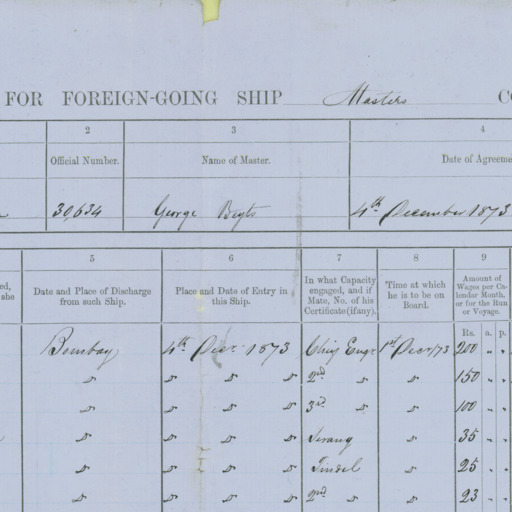 FOR FOREIGN-GOING SHIP Masters CO
2 3 4
Official Number. Name of Master. Date of Agreeme
30,634 George Beyts 4th December 1873
5 6 7 8 9
ed, she Date and Place of Discharge from such Ship. Place and Date of Entry in this Ship. In what Capacity engaged, and if Mate, No. of his Certificate (if any). Time at which he is to be on Board. Amount of Wages per Calendar Month, or for the Run or Voyage.
Rs. a. p.
Bombay 4th Decr 1873 Chief Engr 1st Decr/73 200 " "
" " " " 2nd " 150 " "
" " " " 3rd " " 100 " "
" " " " Serang " 35 " "
" " " " Tindel " 25 " "
" " " " 2nd " " 23 " "